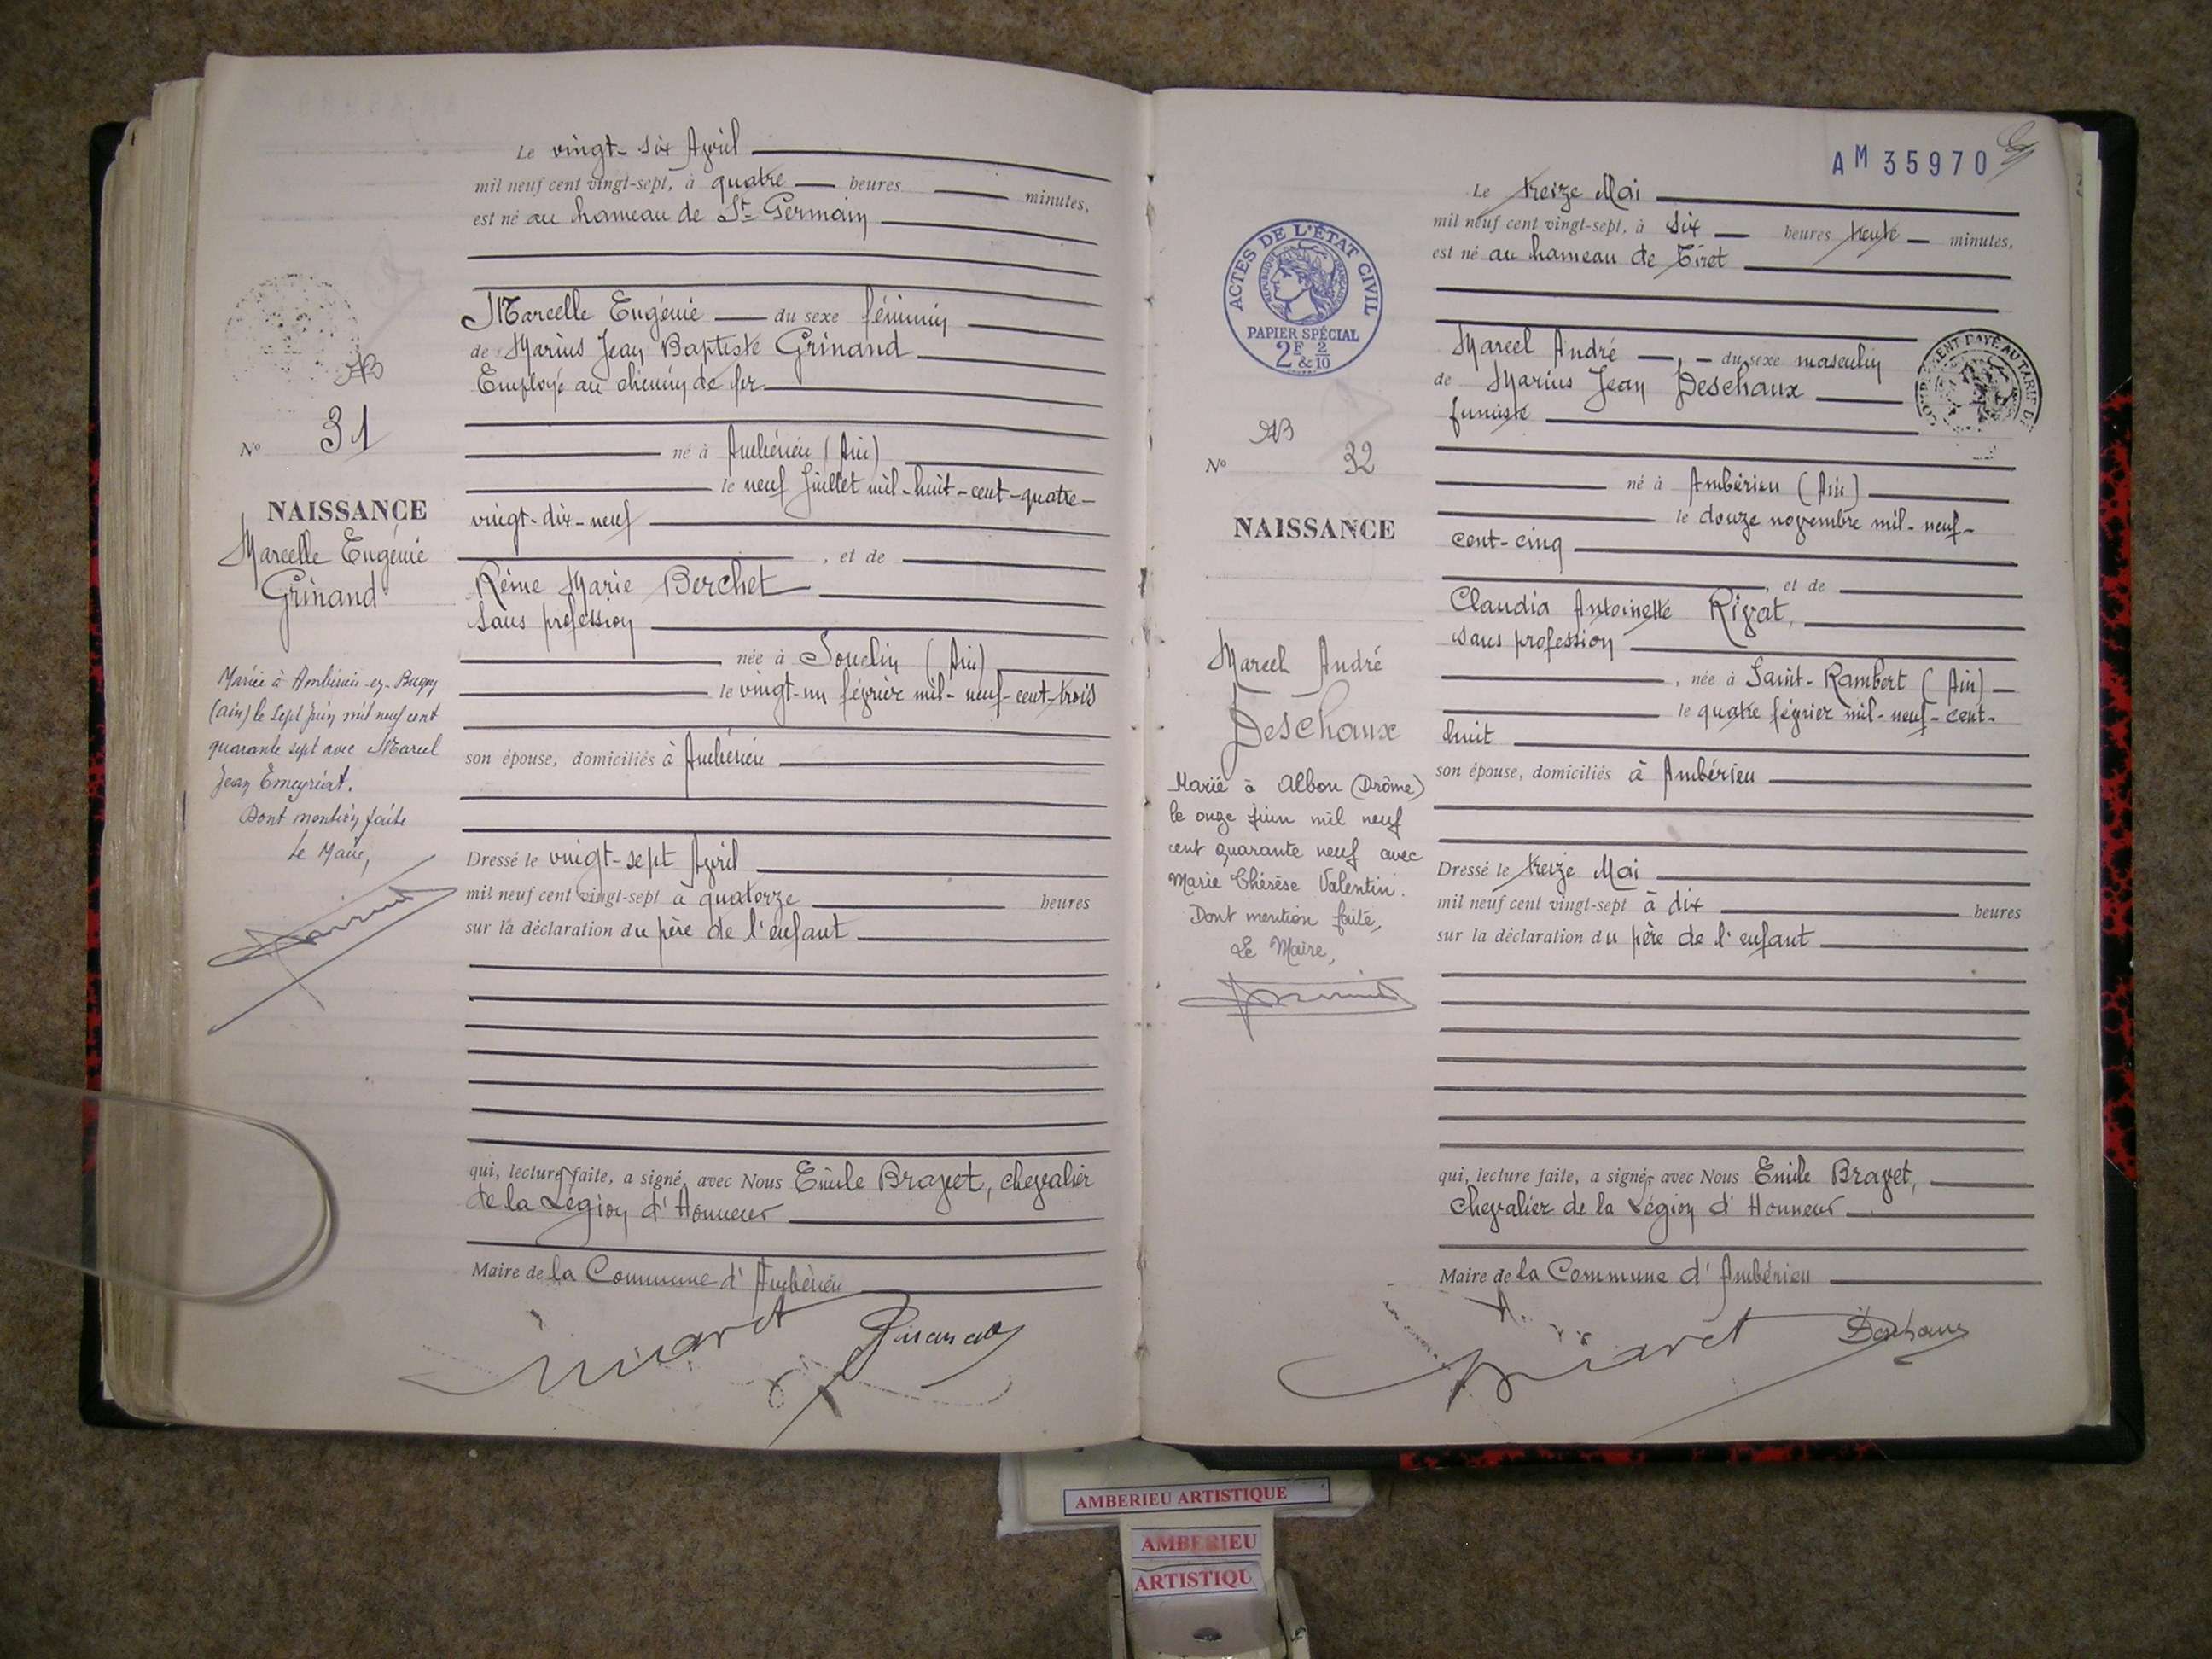 Le vingt-six Avril
mil neuf cent vingt-sept, à quatre heures minutes,
est né au hameau de St Germain
Marcelle Eugénie du sexe féminin
de Marius Jean Baptiste Grinand
Employé au chemin de fer
né à Ambérieu (Ain)
le neuf Juillet mil-huit-cent-quatre-
vingt-dix-neuf
, et de
Reine Marie Berchet
sans profession
née à Souclin (Ain)
le vingt-un février mil-neuf-cent-trois
son épouse, domiciliés à Ambérieu
Dressé le vingt-sept Avril
mil neuf cent vingt-sept à quatorze heures
sur la déclaration du père de l'enfant
qui, lecture faite, a signé, avec Nous Emile Bravet, chevalier
de la Légion d'Honneur
Maire de la Commune d'Ambérieu
AB
No 31
NAISSANCE
Marcelle Eugénie
Grinand
Mariée à Ambérieu-en-Bugey
(Ain) le sept juin mil neuf cent
quarante sept avec Marcel
Jean
Dont mention faite
Le Maire,
AM 35970
Le treize Mai
mil neuf cent vingt-sept, à six heures trente minutes,
est né au hameau de Tiret
Marcel André , du sexe masculin
de Marius Jean Deschaux
fumiste
né à Ambérieu (Ain)
le douze novembre mil-neuf-
cent-cinq
, et de
Claudia Antoinette Rivat,
sans profession
, née à Saint-Rambert (Ain)
le quatre février mil-neuf-cent-
huit
son épouse, domiciliés à Ambérieu
Dressé le treize Mai
mil neuf cent vingt-sept à dix heures
sur la déclaration du père de l'enfant
qui, lecture faite, a signé, avec Nous Emile Bravet,
Chevalier de la Légion d'Honneur
Maire de la Commune d'Ambérieu
Deschaux
ACTES DE L'ÉTAT CIVIL
RÉPUBLIQUE FRANÇAISE
PAPIER SPÉCIAL
2F & 2/10
AB
No 32
NAISSANCE
Marcel André
Deschaux
Marié à Albon (Drôme)
le onze juin mil neuf
cent quarante neuf avec
Marie Thérèse Valentin.
Dont mention faite,
Le Maire,
AMBERIEU ARTISTIQUE
AMBERIEU
ARTISTIQU